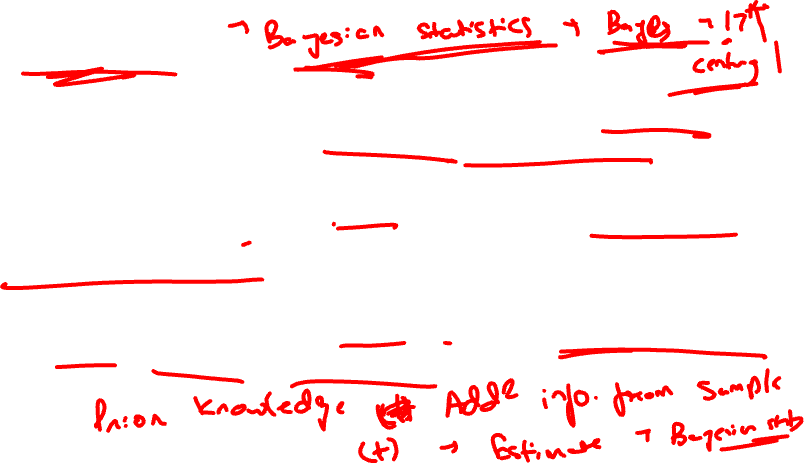 → Bayesian statistics → Bayes → 17th
century
Prior knowledge Add info. from sample
(+) → Estimate → Bayesian stats